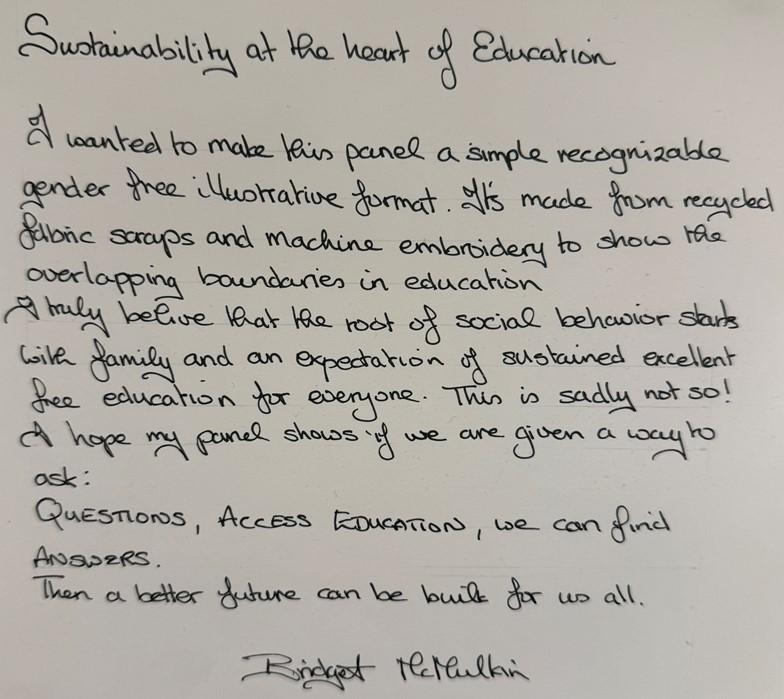 Sustainability at the heart of Education
I wanted to make this panel a simple recognizable
gender free illustrative format. It's made from recycled
fabric scraps and machine embroidery to show the
overlapping boundaries in education
I truly belive that the root of social behavior starts
with family and an expectation of sustained excellent
free education for everyone. This is sadly not so!
I hope my panel shows if we are given a way to
ask:
QUESTIONS, ACCESS EDUCATION, we can find
ANSWERS.
Then a better future can be built for us all.
Bridget McMulkin